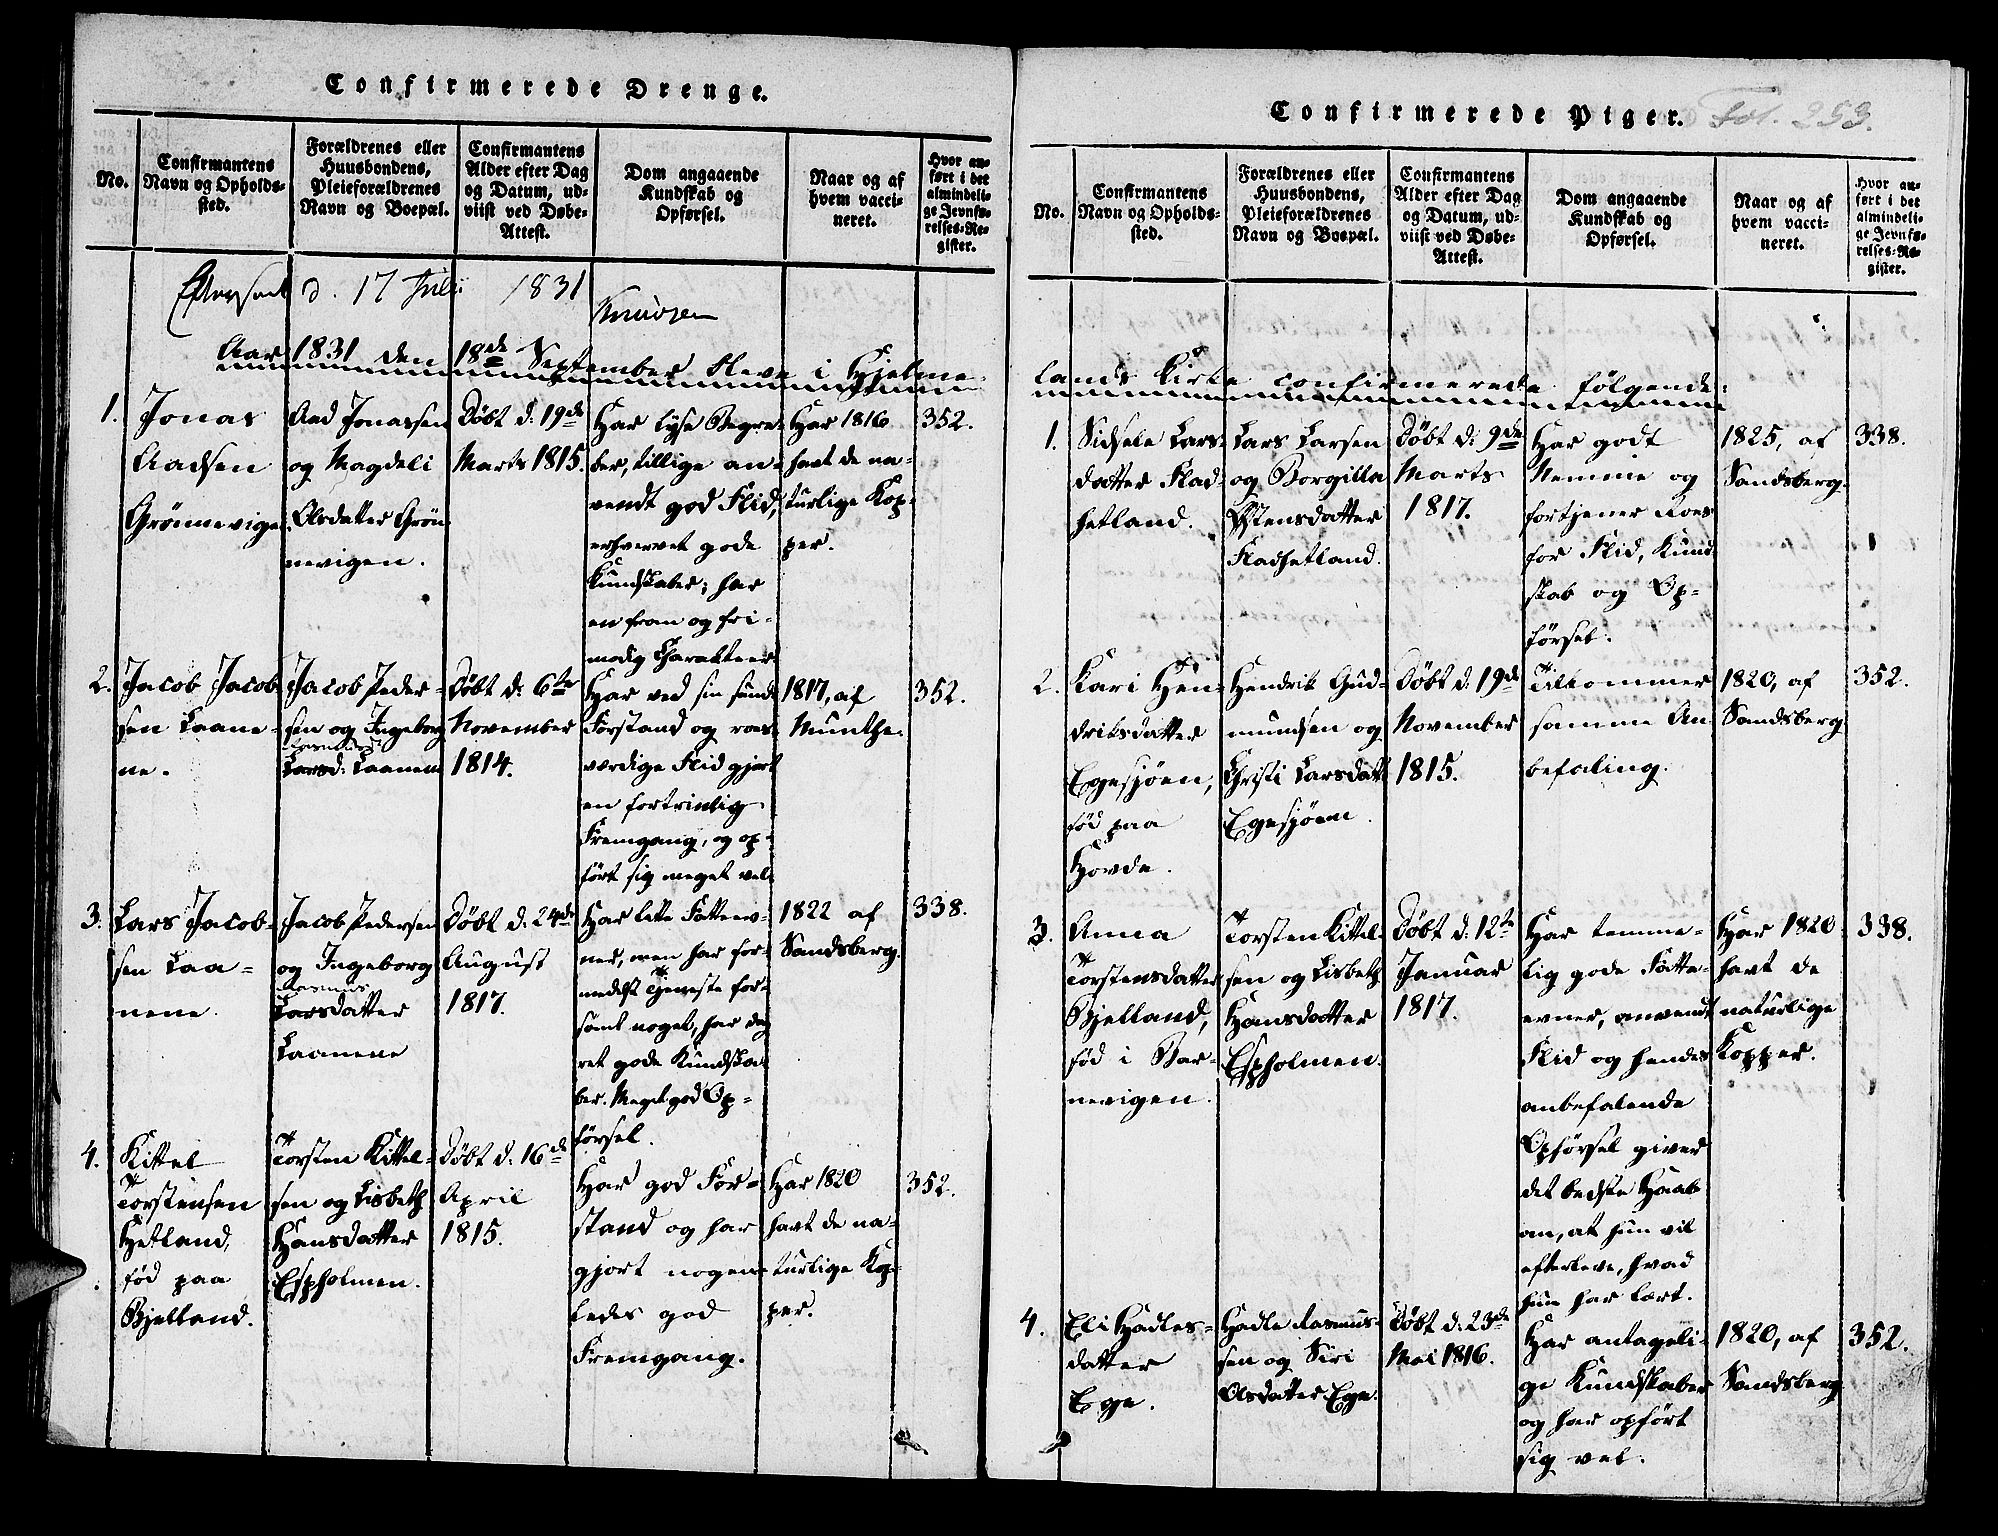 Confirmerede Drenge.
No.
Confirmantens
Navn og Opholds-
sted.
Forældrenes eller
Huusbondens,
Pleieforældrenes
Navn og Boepæl.
Confirmantens
Alder efter Dag
og Datum, ud-
viist ved Døbe-
Attest.
Dom angaaende
Kundskab og
Opførsel.
Naar og af
hvem vacci-
neret.
Hvor an-
ført i det
almindeli-
ge Jevnfø-
relses-Re-
gister.
Efterseet d. 17 Juli 1831
Knudzen
Aar 1831 den 18de September bleve i Hjelme-
1.
Jonas
Aadsen
Grönnevigen
Aad Jonassen
og Magdeli
Olsdatter Grön-
nevigen.
Döbt d. 19de
Marts 1815.
Har lyse Begre-
ber, tillige an-
vendt god Flid,
erhvervet gode
Kundskaber; har
en from og fri-
modig Charakteer
Har 1816
havt de na-
turlige Kop-
per.
352.
2.
Jacob Jacob-
sen Laane-
ne.
Jacob Peder-
sen og Ingeborg
Larsd: Laanene
Döbt d: 6te
November
1814.
Har ved sin sunde
Forstand og roes-
værdige Flid gjort
en fortrinlig
Fremgang, og op-
fört sig meget vel.
1817, af
Munthe.
352.
3.
Lars Jacob-
sen Laa-
nene.
Jacob Pedersen
og Ingeborg
Rasmus
Larsdatter
Laanene
Döbt d. 24de
August
1817.
Har lette Fatteev-
ner, men har for-
medelst Tjeneste for-
sömt noget, har dog
ret gode Kundska-
ber. Meget god Op-
försel.
1822 af
Sandsberg.
338.
4.
Kittel
Torstensen
Hetland,
föd paa
Bjelland.
Torsten Kittel-
sen og Lisbeth
Hansdatter
Espholmen.
Döbt d: 16de
April
1815.
Har god For-
stand og har
gjort nogen-
ledes god
Fremgang.
Har 1820
havt de na-
turlige Kop-
per.
352.
Confirmerede Piger.
Fol. 253.
No.
Confirmantens
Navn og Opholds-
sted.
Forældrenes eller
Huusbondens,
Pleieforældrenes
Navn og Boepæl.
Confirmantens
Alder efter Dag
og Datum, ud-
viist ved Døbe-
Attest.
Dom angaaende
Kundskab og
Opførsel.
Naar og af
hvem vacci-
neret.
Hvor an-
ført i det
almindeli-
ge Jevnfø-
relses-Re-
gister.
lands Kirke confirmerede følgende:
1.
Sidsele Lars-
datter Flad-
hetland.
Lars Larsen
og Borgilla
Östensdatter
Fladhetland.
Döbt d: 9de
Marts
1817.
Har godt
Nemme og
fortjener Roes
for Flid, Kund-
skab og Op-
försel.
1825, af
Sandsberg.
338.
2.
Kari Hen-
driksdatter
Egesjöen,
föd paa
Hovda.
Hendrik Gud-
mundsen og
Christi Larsdatt.
Egesjöen.
Döbt d: 19de
November
1815.
Tilkommer
samme An-
befaling.
1820, af
Sandsberg
352.
3.
Anna
Torstensdatter
Bjelland,
föd i Bar-
nevigen.
Torsten Kittel-
sen og Lisbeth
Hansdatter
Espholmen.
Döbt d: 12te
Januar
1817.
Har temme-
lig gode Fatte-
evner, anvendt
Flid og hendes
anbefalende
Opförsel giver
det bedste Haab
om, at hun vil
efterleve, hvad
hun har lært.
Har 1820
havt de
naturlige
Kopper.
338.
4.
Eli Hadles-
datter
Ege.
Hadle Rasmus-
sen og Siri
Olsdatter Ege.
Döbt d: 23de
Mai 1816.
Har antageli-
ge Kundskaber
og har opfört
sig vel.
1820, af
Sandsberg
352.